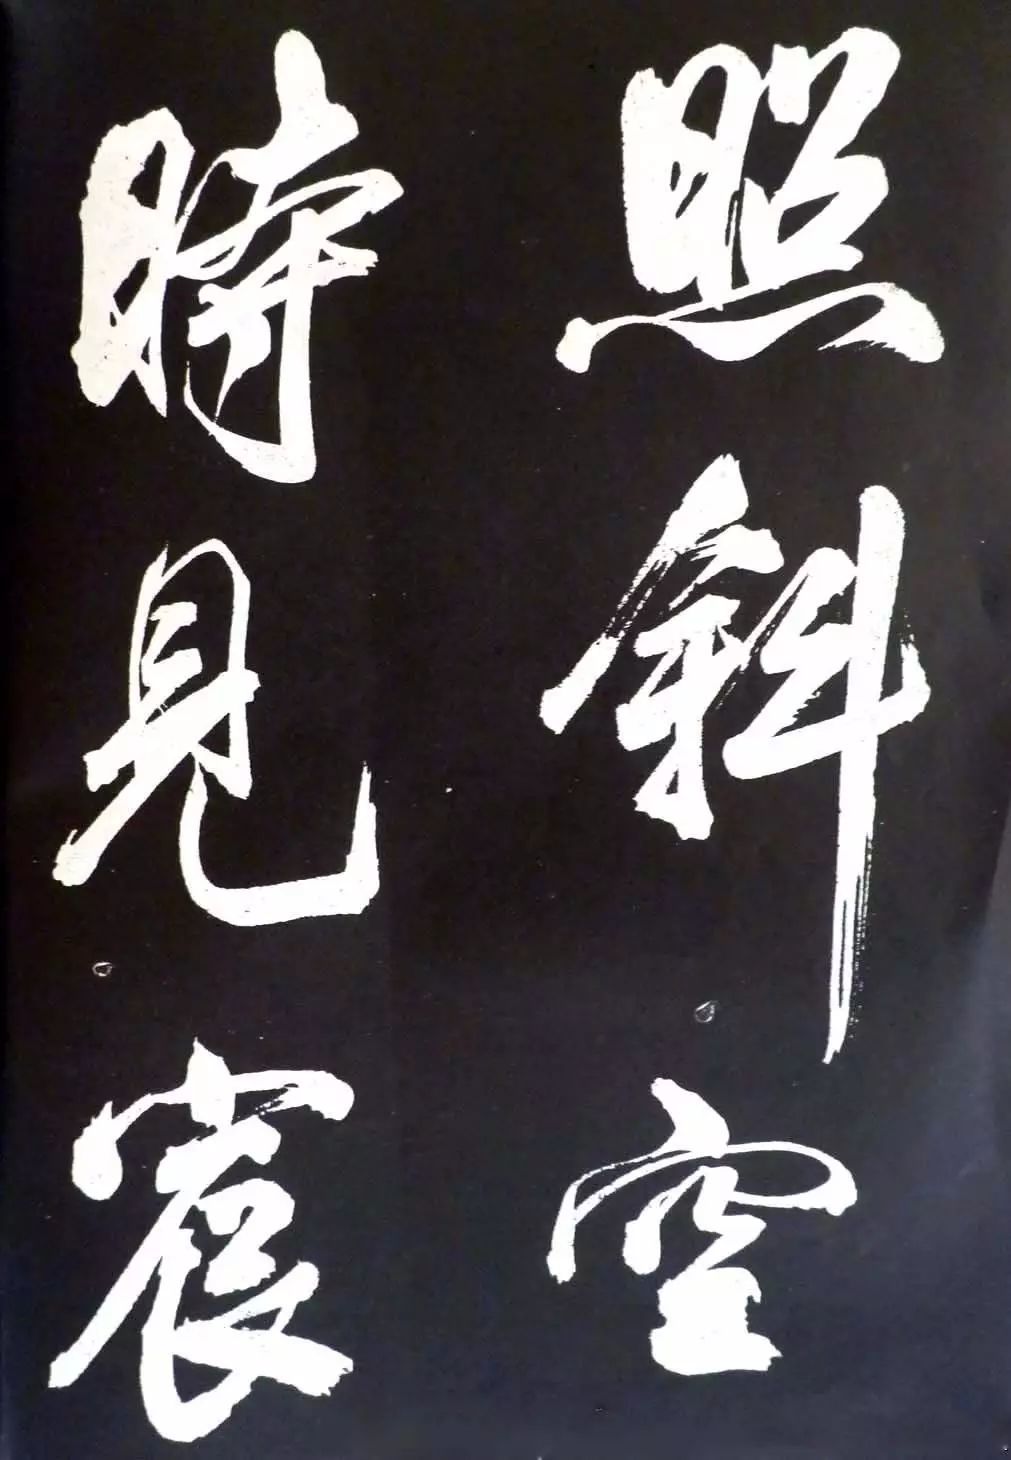 照斜空
時見宸